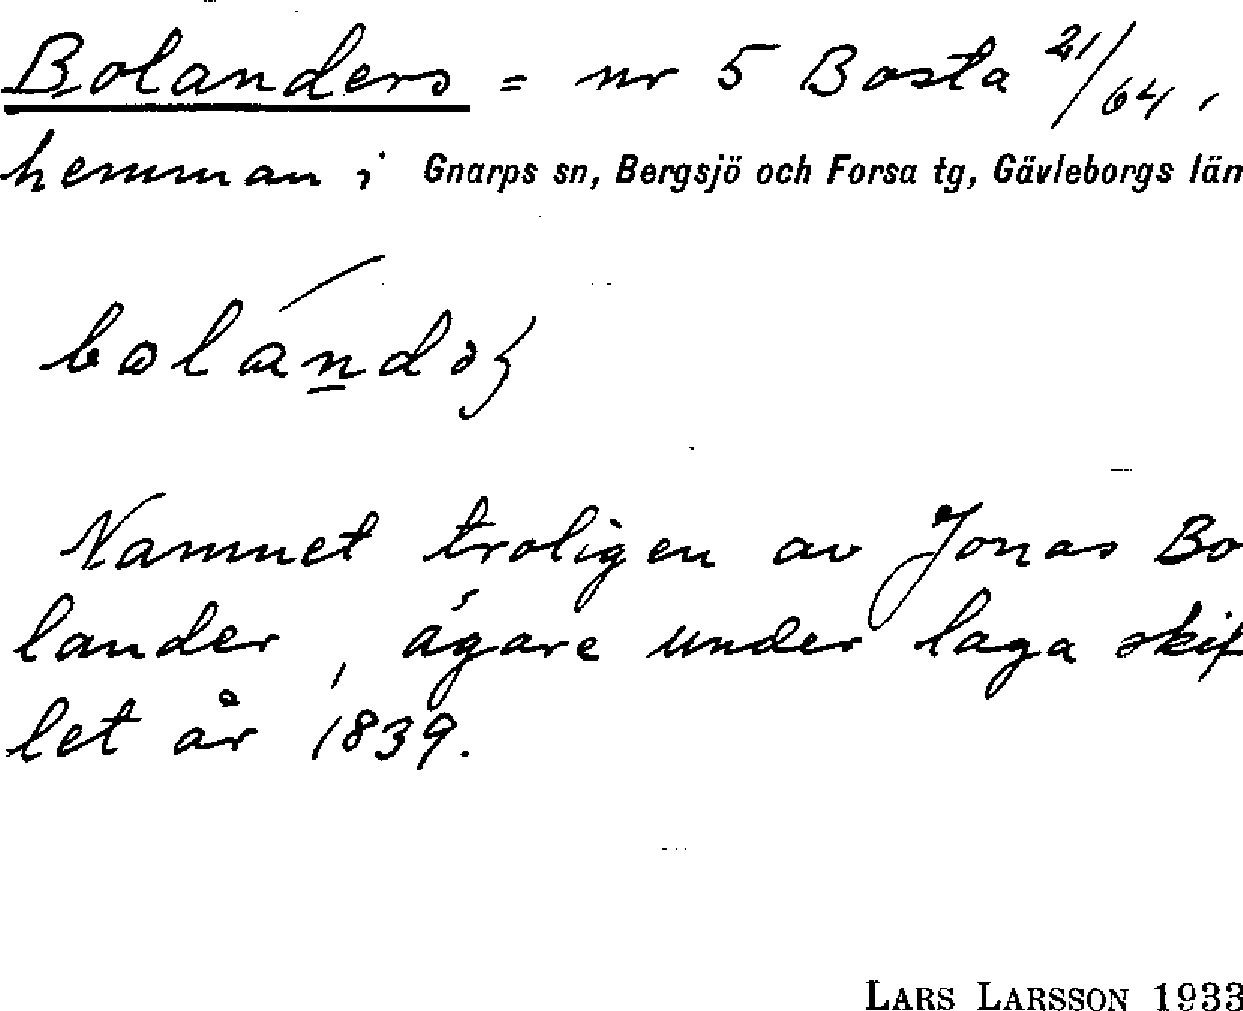 Bolanders = nr 5 Bosta 21/64,
hemman i Gnarps sn, Bergsjö och Forsa tg, Gävleborgs län
Namnet troligen av Jonas Bo
lander, ägare under laga skif
tet år 1839.
LARS LARSSON 1933